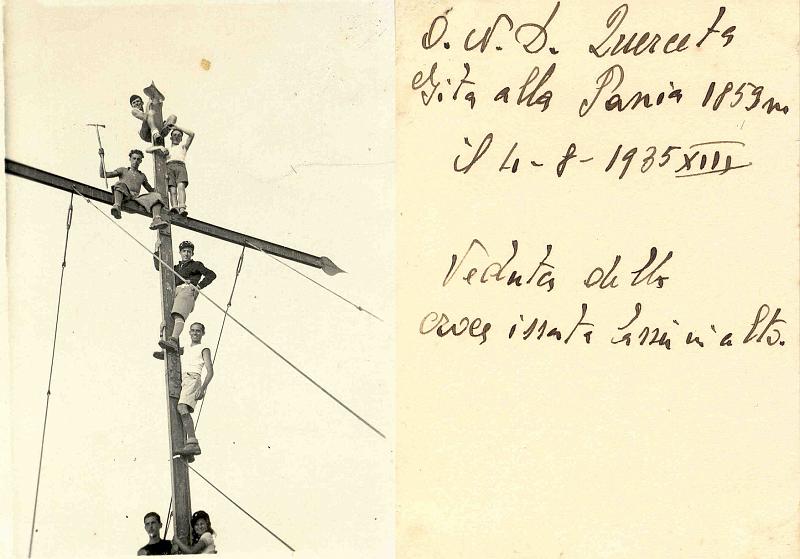 O. N. D. Querceta
Gita alla Pania 1859 m
il 4-8-1935 XIII
Veduta della
croce issata lassù in alto.